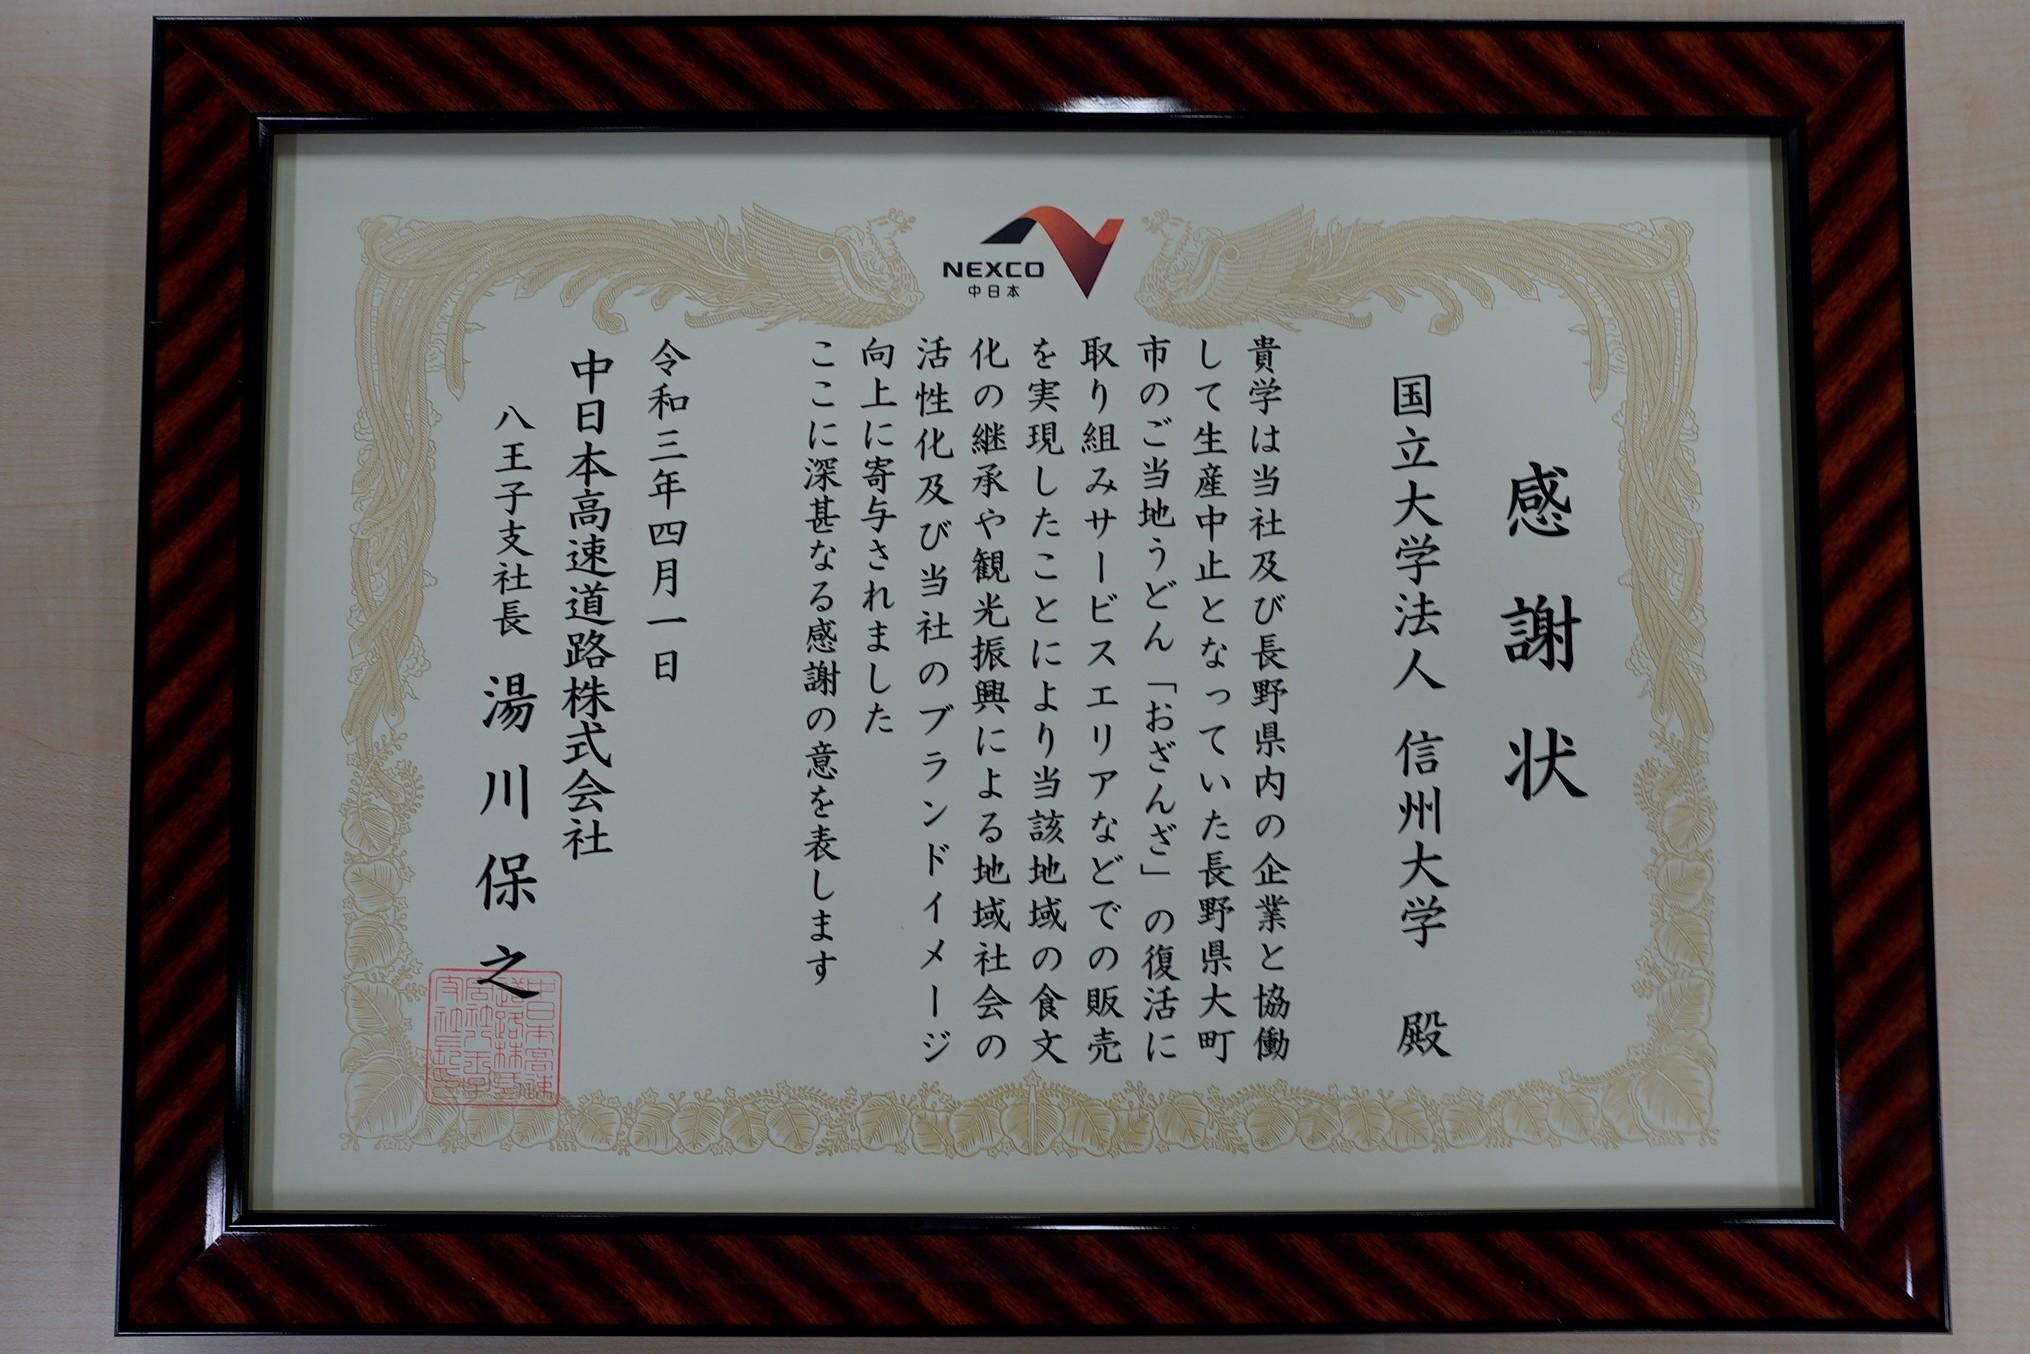 NEXCO
中日本
感謝状
国立大学法人 信州大学 殿
貴学は当社及び長野県内の企業と協働
して生産中止となっていた長野県大町
市のご当地うどん「おざんざ」の復活に
取り組みサービスエリアなどでの販売
を実現したことにより当該地域の食文
化の継承や観光振興による地域社会の
活性化及び当社のブランドイメージ
向上に寄与されました
ここに深甚なる感謝の意を表します
令和三年四月一日
中日本高速道路株式会社
八王子支社長 湯川保之